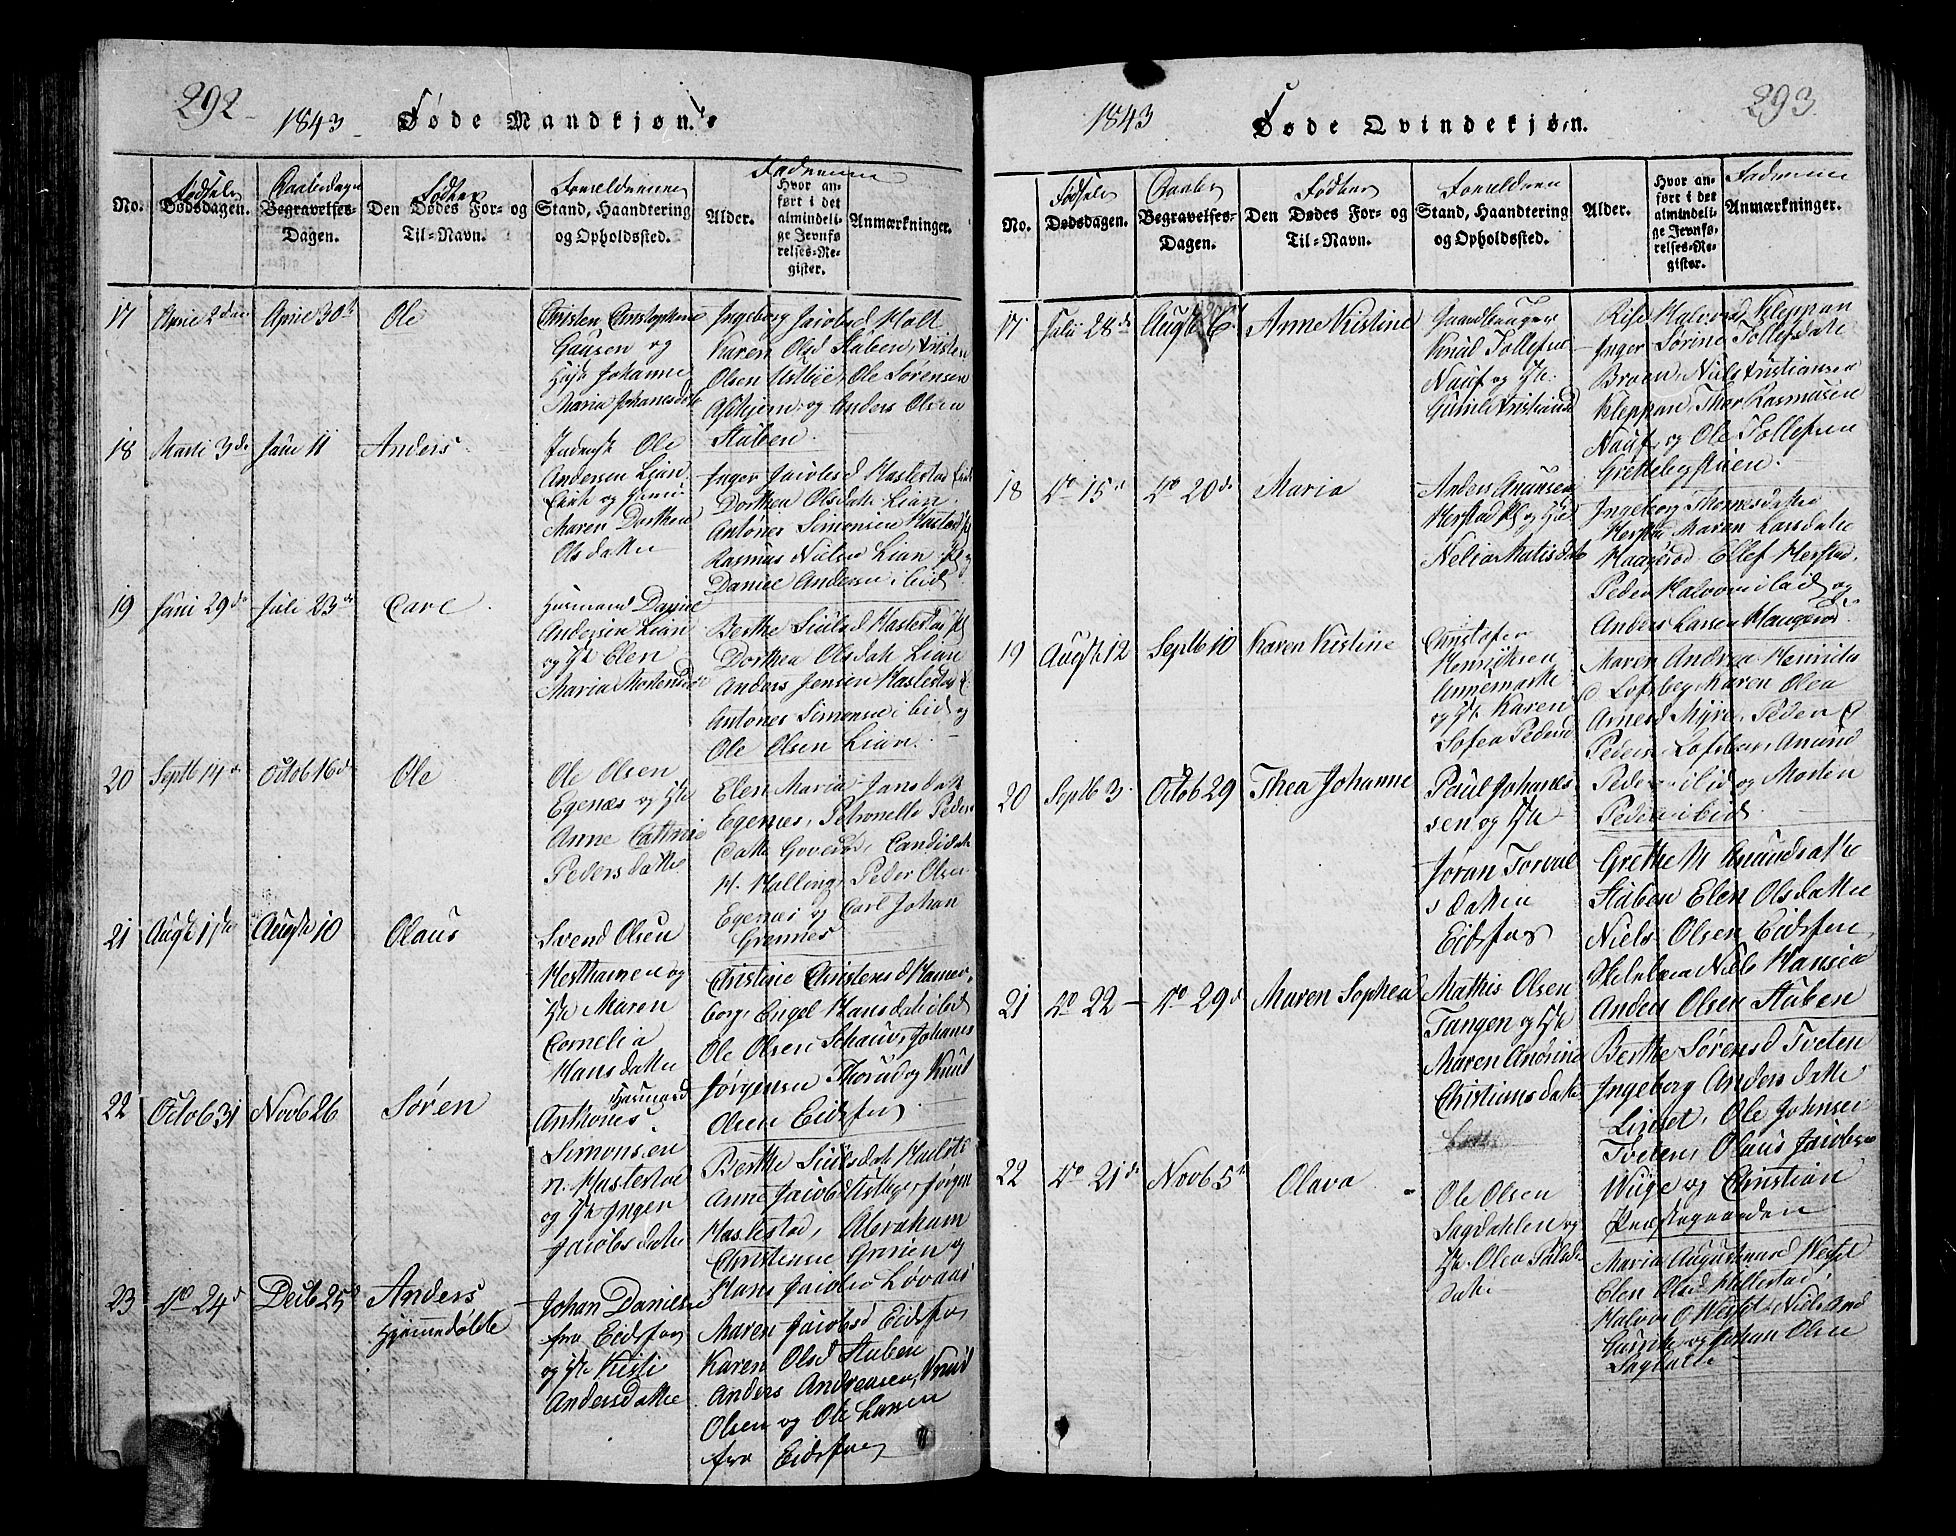 292
1843 Føde Mandkjøn.
Fødsels Daabsdagen Fødtes Forældrenes Fadderne
No. Dødsdagen. Begravelses-Dagen. Den Dødes For- og Til-Navn. Stand, Haandtering og Opholdssted. Alder. Hvor anført i det almindelige Jevnførelses-Register. Anmærkninger.
17 April 2den April 30te Ole
Christen Christophersen
Gaasen og
Johanne
Maria Johannesd
Ingeborg Jacobsd Holt
Karen Olsd Staben, Kristen
Olsen Ustbÿe, Ole Sørensen
og Anders Olsen
Staben
18 Marti 3de Juni 11 Anders
Ole
Andersen Lian
og
Maren Dorthea
Olsdatter
Inger Jacobsd Haslestad
Dorthea Olsdatt Lian
Antones Simonsen Haslestad
Rasmus Nielsen Lian
Daniel Andersen ibid
19 Juni 29de Juli 23de Carl
Huusmand Daniel
Andersen Lian
og H Elen
Maria Mortensdatter
Berthe Siulsd Haslestad
Dorthea Olsdatt Lian
Anders Jensen Haslestad
Antones Simonsen ibid og
Ole Olsen Lian
20 Septb 14de Octob 16de Ole
Ole Olsen
Egenæs og H
Anne Cathrine
Pedersdatter
Elen Maria Jansdatt
Egenæs, Petronelle Peders
datter Goverød, Candidat
H. Halling, Peder Olsen
Egenæs og Carl Johan
Grennes
21 Augst 1ste Augst 10 Olaus
Svend Olsen
Hesthamen og
H Maren
Cornelia
Hansdatter
Christine Christensd Hamer
borg, Engel Hansdatt ibid
Ole Olsen Schauv, Johannes
Jørgensen Thorud og Knut
Olsen Eidsfos
22 Octob 31 Novb 26 Søren
Huusmand
Anthones
Simonsen
n. Haslestad
og H Ingen
Jacobsdatter
Berthe Siulsdatt Haslest
Anne Jacobsd Jørgen
Haslestad, Abraham
Christensen Grinien og
Hans Jacobsen Løvaas
23 do 24de Decb 25de Anders
Hjemmedøbte
Johan Danielsen
fra Eidsfos
og H Kisti
Andersdatter
Maren Jacobsd Eidsfos
Karen Olsd Staben
Anders Andreasen, Knud
Olsen og Ole Larsen
fra Eidsfos
293
1843 Føde Qvindekjøn.
Fødsels Daabs Fødtes Forældrene Fadderne
No. Dødsdagen. Begravelses-Dagen. Den Dødes For- og Til-Navn. Stand, Haandtering og Opholdssted. Alder. Hvor anført i det almindelige Jevnførelses-Register. Anmærkninger.
17 Julii 28de Augst 6 Anne Kristine
Gaardbruger
Knud Tollefsen
Nauf og H
Gunild Kristiansd
Rise Halvorsd Kleppan
Inger Sorine Tollefsdatt
Braen, Niels Kristiansen
Kleppan, Thor Rasmusen
Nauf og Ole Tollefsen
Grettebygstuen.
18 do 15de do 20de Maria
Anders Anunsen
Herstad
Nelia Matisdat
Ingeborg Thomesdatter
Herstad Maren Larsdatter
Haugerod Ellef Herstad,
Peder Halvorsen ibid og
Anders Larsen Haugerod
19 Augst 12 Septb 10 Karen Kristine
Christofer
Henriksen
og H Karen
Sofea Pedersd
Maren Andrea Henriks
d Lofsberg, Karen Olea
Arnesd Myre, Peder
Peders Lofsberg, Anund
Peders ibid og Morten
Peders ibid.
20 Septb 3 Octob 29 Thea Johanne
Paul Johannes
sen og H
Joran Torval
sdatter
Eidsfos
Grethe M Anundsatter
Staben Elen Olsdatter
Niels Olsen Eidsfos,
Niels Hansen
Anders Olsen Staben
21 do 22 do 29de Maren Sophea
Mathis Olsen
Tangen og H
Maren Andrine
Christiansdatter
Berthe Sørensd Tveten
Ingeborg Andersdatter
Linset, Ole Johnsen
Tveten, Olaus Jacobsen
Wüge og Christian
Præstegaarden
22 do 21de Novb 5te Olava
Ole Olsen
Sagdahlen og
H Olea
datter
Maria Wegst
Elen Olsd Hillestad,
Halvor O Wegst, Niels
og Johan Olsen
Sagdalen